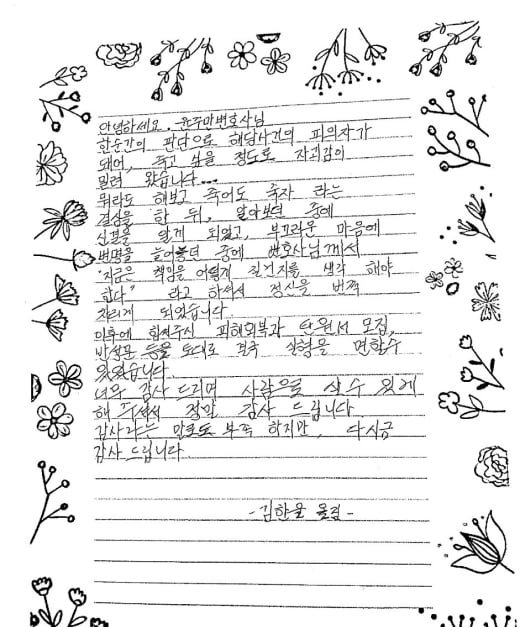 안녕하세요. 윤주만변호사님
한순간의 판단으로 해당사건의 피의자가
되어, 죽고 싶을 정도로 자괴감이
밀려 왔습니다...
뭐라도 해보고 죽어도 죽자 라는
결심을 한 뒤, 알아보던 중에
신결을 알게 되었고, 부끄러운 마음에
변명을 늘어놓던 중에 변호사님께서
"지금은 책임을 어떻게 질건지를 생각 해야
한다" 라고 하셔서 정신을 번쩍
차리게 되었습니다.
이후에 힘써주신 피해회복과 탄원서 모집,
반성문 등을 토대로 결국 실형을 면할수
있었습니다.
너무 감사 드리며 사람으로 살 수 있게
해 주셔서 정말 감사 드립니다
감사라는 말로도 부족 하지만, 다시금
감사 드립니다
- 김한울 올림 -